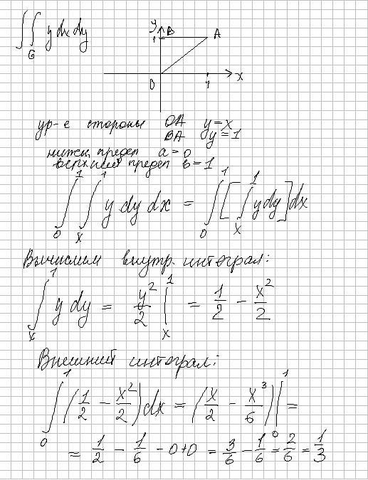 ∬_G y dx dy
y
1 B A
0 1 x
ур-е стороны OA y=x
BA y=1
нижн. предел a=0
верхний предел b=1
∫₀¹ ∫ₓ¹ y dy dx = ∫₀¹ [∫ₓ¹ y dy] dx
Вычислим внутр. интеграл:
∫ₓ¹ y dy = y²/2 |ₓ¹ = 1/2 − x²/2
Внешний интеграл:
∫₀¹ (1/2 − x²/2) dx = (x/2 − x³/6) |₀¹ =
= 1/2 − 1/6 − 0+0 = 3/6 − 1/6 = 2/6 = 1/3